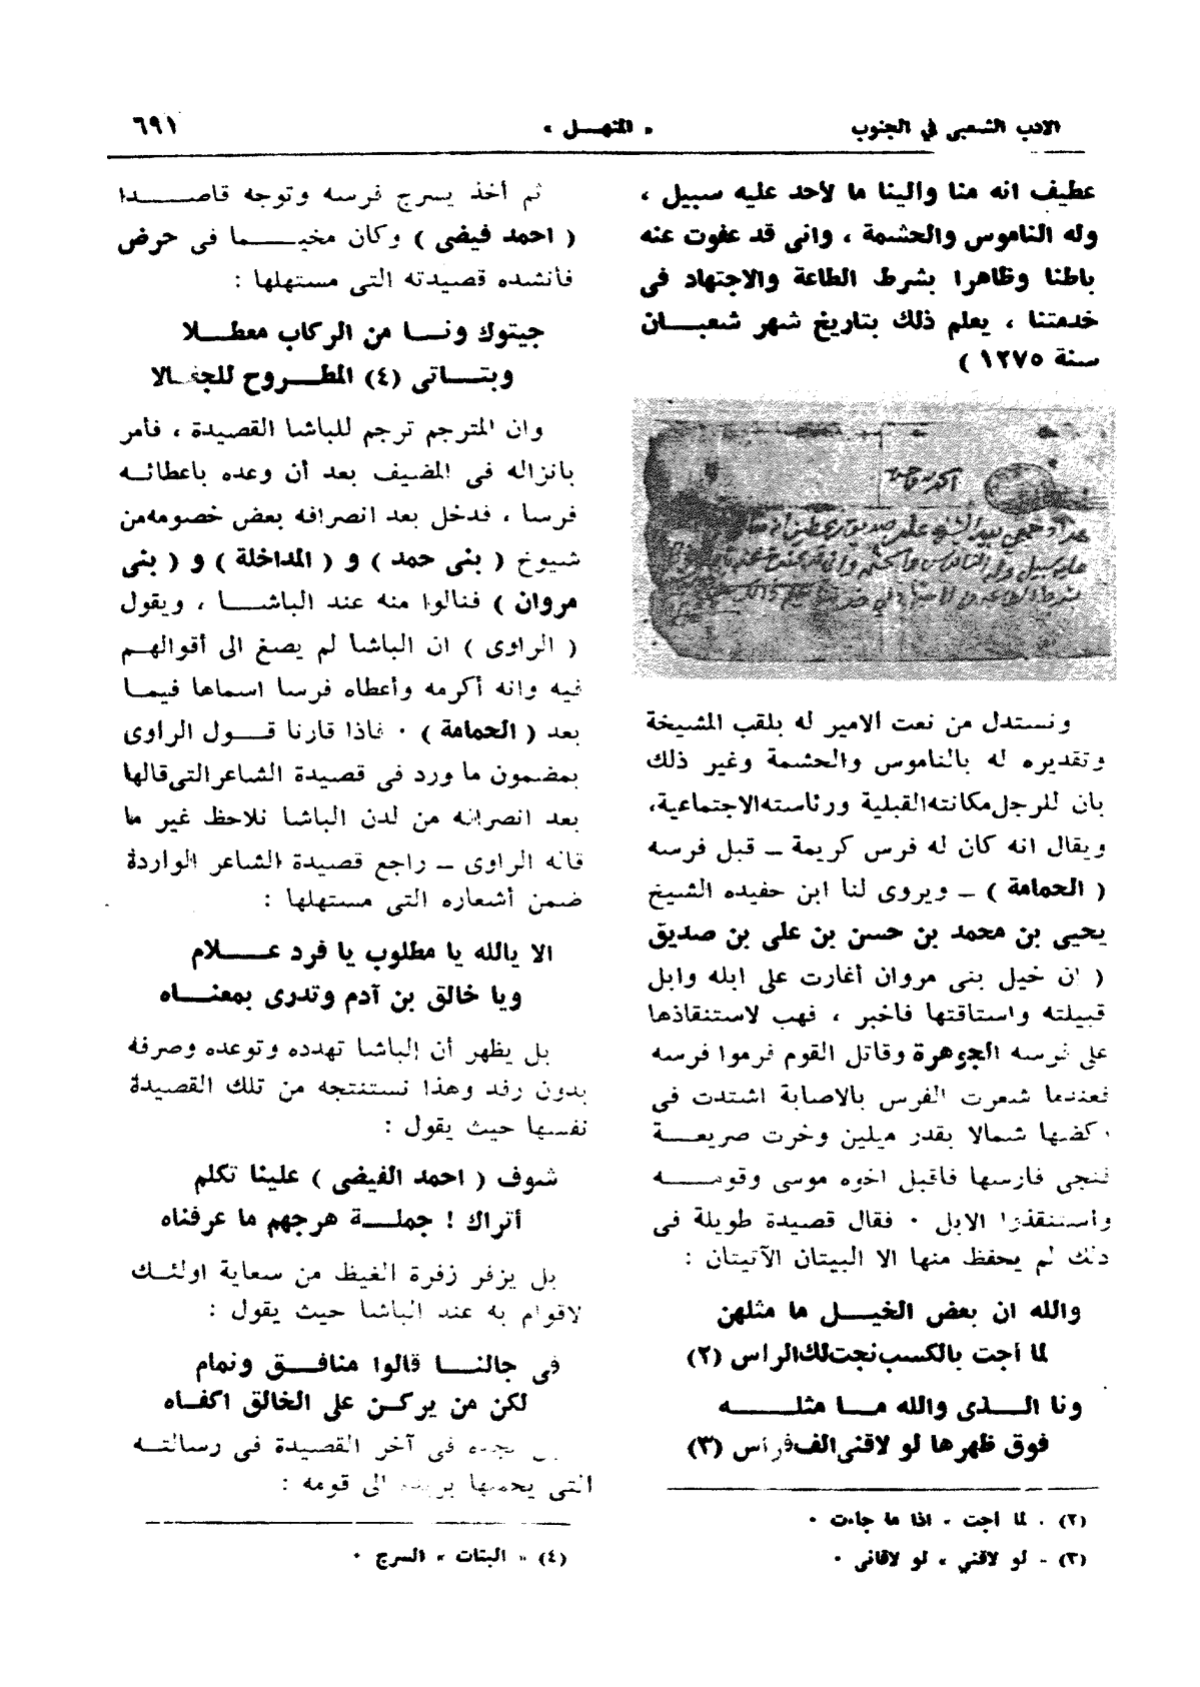 الادب الشعبي في الجنوب
« المنهـل »
٦٩١
عطيف انه منا والينا ما لأحد عليه سبيل ،
وله الناموس والحشمة ، وانى قد عفوت عنه
باطنا وظاهرا بشرط الطاعة والاجتهاد فى
خدمتنا ، يعلم ذلك بتاريخ شهر شعبـــان
سنة ١٢٧٥ )
ونستدل من نعت الامير له بلقب المشيخة
وتقديره له بالناموس والحشمة وغير ذلك
بان للرجل مكانته القبلية ورئاسته الاجتماعية،
ويقال انه كان له فرس كريمة ــ قبل فرسه
( الحمامة ) ــ ويروى لنا ابن حفيده الشيخ
يحيى بن محمد بن حسن بن على بن صديق
( ان خيل بنى مروان أغارت على ابله وابل
قبيلته واستاقتها فاخبر ، فهب لاستنقاذها
على فرسه الجوهرة وقاتل القوم فرموا فرسه
فعندما شعرت الفرس بالاصابة اشتدت فى
ركضها شمالا بقدر ميلين وخرت صريعــة
فنجى فارسها فاقبل اخوه موسى وقومــــه
واستنقذوا الابل ٠ فقال قصيدة طويلة فى
ذلك لم يحفظ منها الا البيتان الآتيتان :
والله ان بعض الخيـــل ما مثلهن
لما أجت بالكسب نجت لك الراس (٢)
ونا الــــذى والله مـــا مثلـــــه
فوق ظهرها لو لاقنى الف فراس (٣)
(٢) « لما أجت » اذا ما جاءت ٠
(٣) « لو لاقني » لو لاقانى ٠
ثم أخذ يسرج فرسه وتوجه قاصــــدا
( احمد فيضى ) وكان مخيـــــما فى حرض
فأنشده قصيدته التى مستهلها :
جيتوك ونـــا من الركاب معطـــلا
وبتـــاتى (٤) المطــروح للجفــالا
وان المترجم ترجم للباشا القصيدة ، فأمر
بانزاله فى المضيف بعد أن وعده باعطائــه
فرسا ، فدخل بعد انصرافه بعض خصومه من
شيوخ ( بنى حمد ) و ( المداخلة ) و ( بنى
مروان ) فنالوا منه عند الباشـــا ، ويقول
( الراوى ) ان الباشا لم يصغ الى أقوالهــم
فيه وانه أكرمه وأعطاه فرسا اسماها فيمــا
بعد ( الحمامة ) ٠ فاذا قارنا قـــول الراوى
بمضمون ما ورد فى قصيدة الشاعر التى قالها
بعد انصرافه من لدن الباشا نلاحظ غير ما
قاله الراوى ــ راجع قصيدة الشاعر الواردة
ضمن أشعاره التى مستهلها :
الا يالله يا مطلوب يا فرد عـــــلام
ويا خالق بن آدم وتدرى بمعنـــاه
بل يظهر أن الباشا تهدده وتوعده وصرفه
بدون رفد وهذا نستنتجه من تلك القصيدة
نفسها حيث يقول :
شوف ( احمد الفيضى ) علينا تكلم
أتراك ! جملـــة هرجهم ما عرفناه
بل يزفر زفرة الغيظ من سعاية اولئــك
الاقوام به عند الباشا حيث يقول :
فى جالنـــا قالوا منافــق ونمام
لكن من يركـــن على الخالق اكفــاه
نجده فى آخر القصيدة فى رسالتــه
التى يحملها بريده الى قومه :
(٤) « البتات » السرج ٠